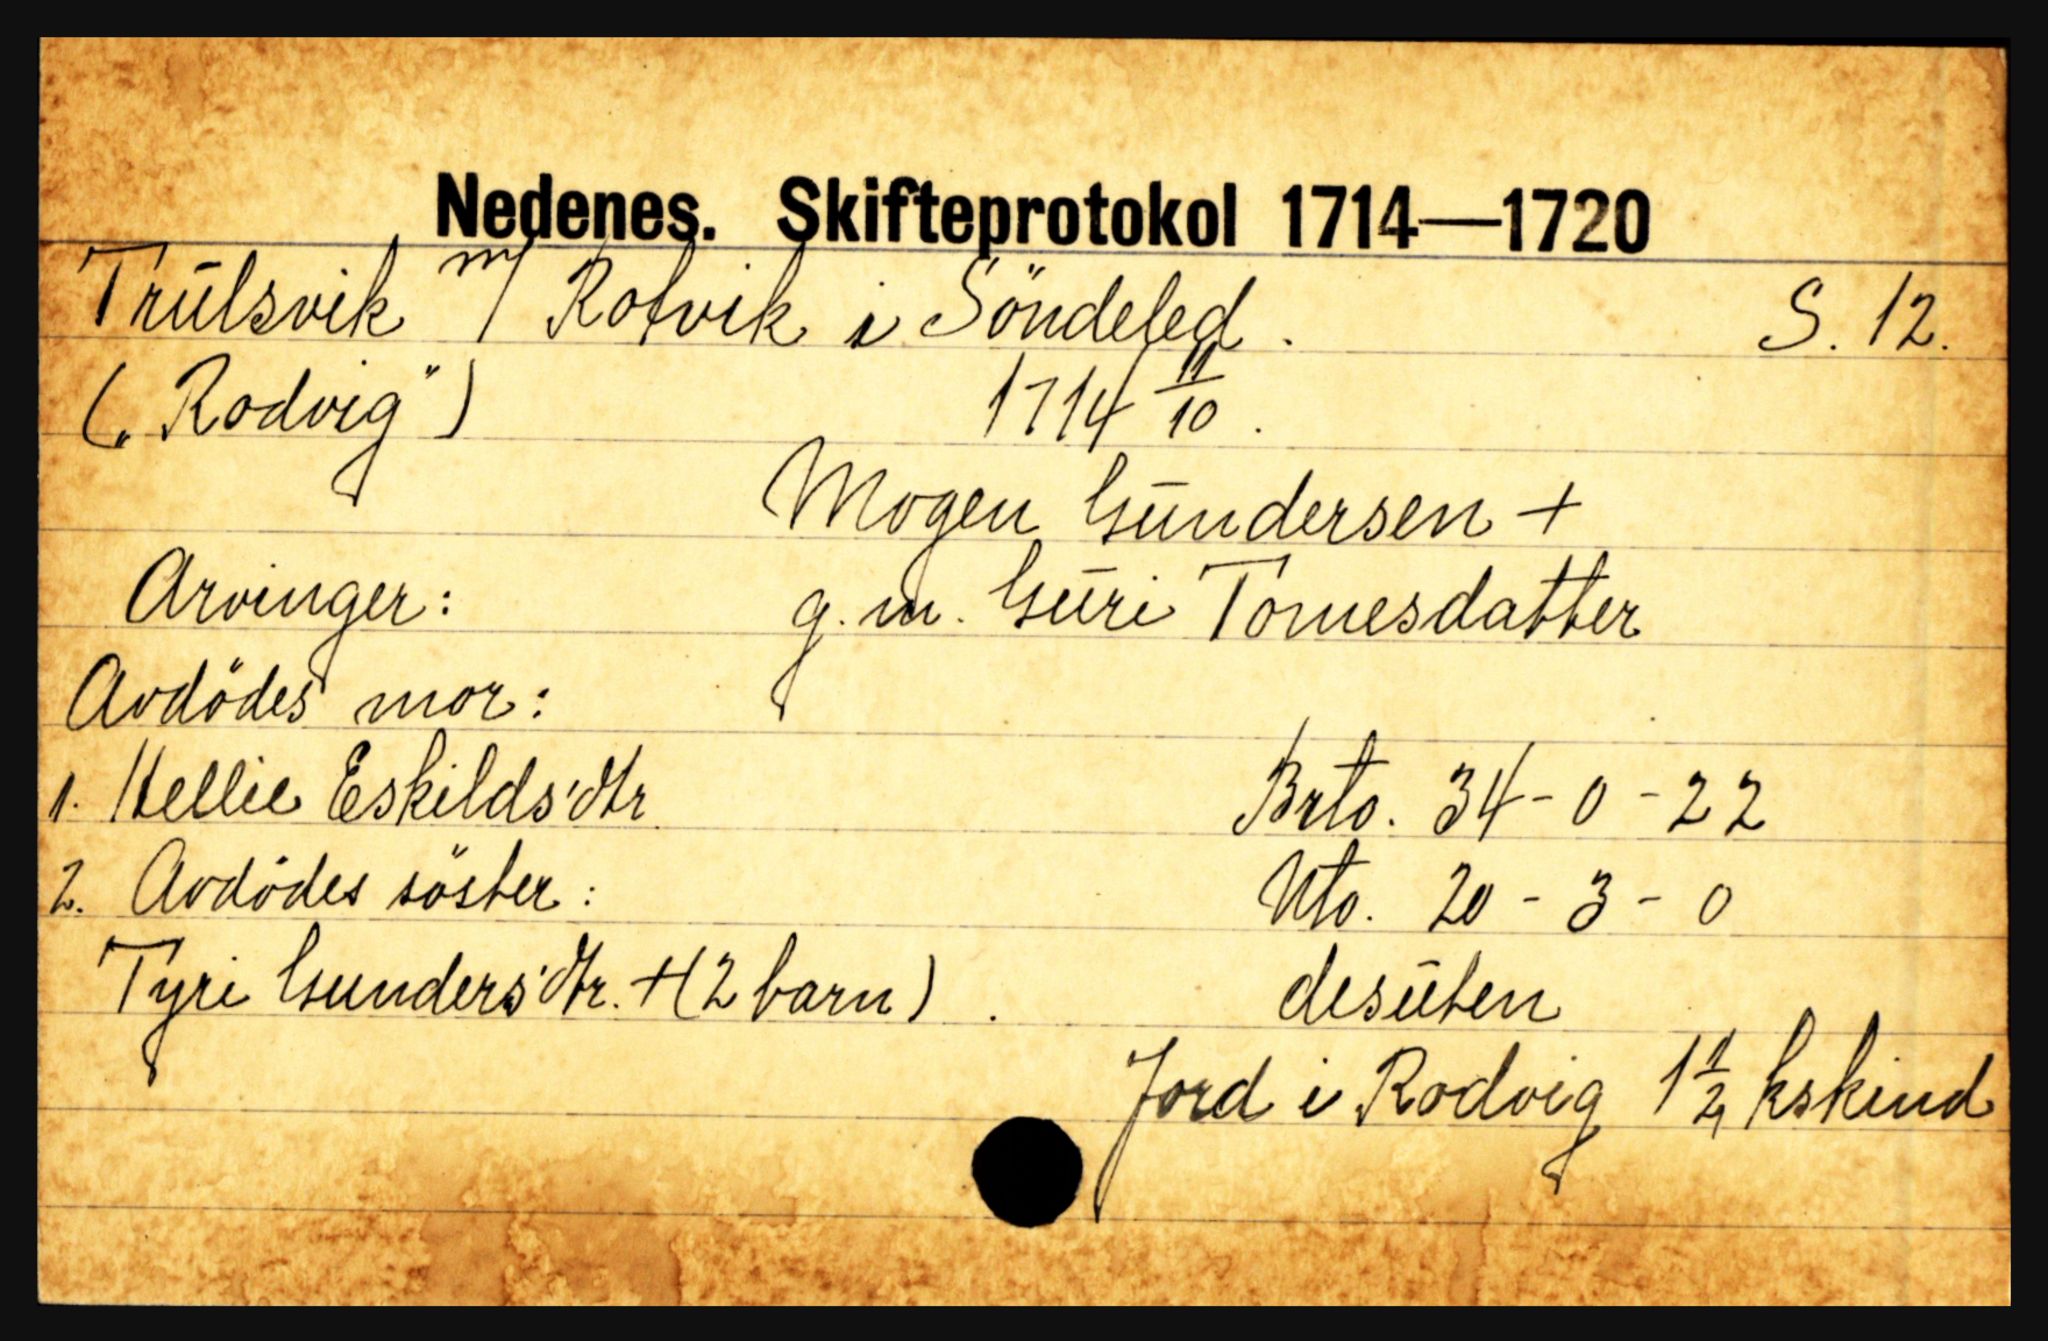 Nedenes. Skifteprotokol 1714—1720
Trulsvik m/ Rotvik i Söndeled. S. 12.
(„Rodvig") 1714 11/10.
Mogen Gundersen +
Arvinger: g. m. Guri Tomesdatter
Avdödes mor:
1. Hellie Eskilds'dtr Brto. 34-0-22
2. Avdödes söster: Nto. 20-3-0
Tyri Gunders'dtr. + (2 barn). desuten
Jord i Rodvig 1 1/2 kskind